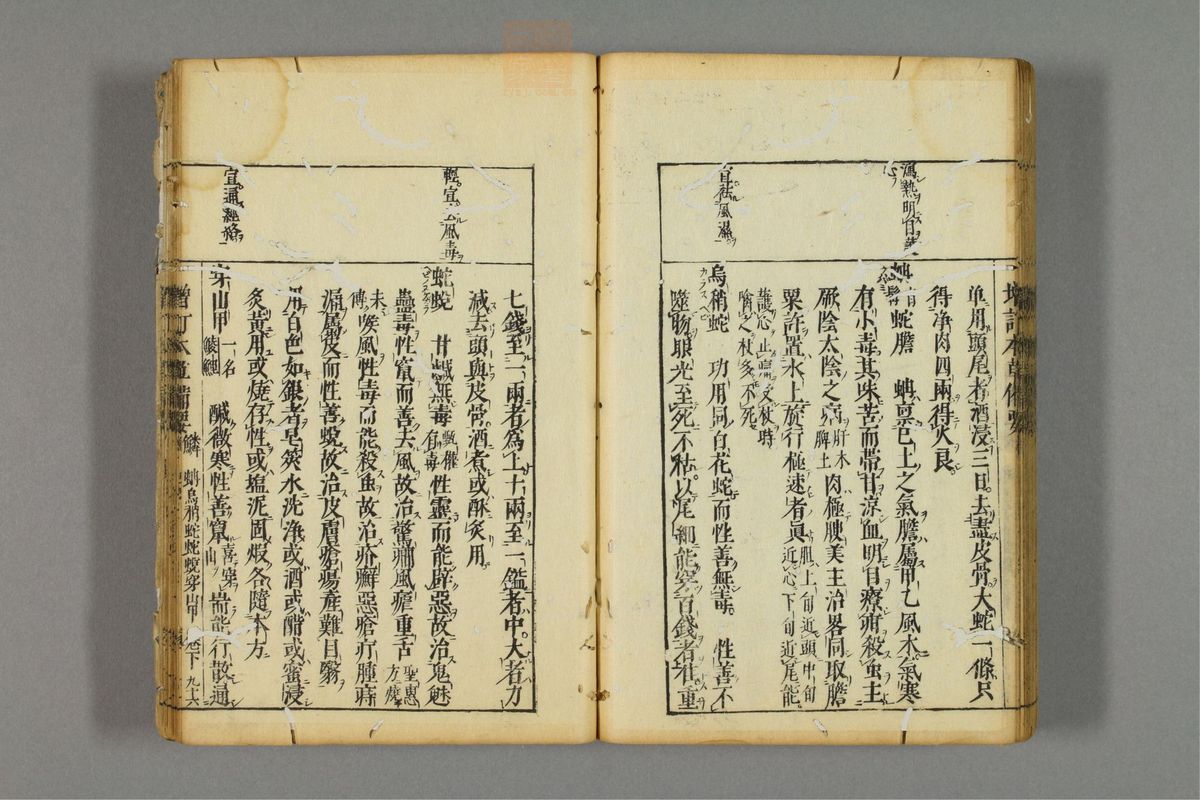 瀉熱明目
宜祛風濕
増訂本草備要
単用頭尾者酒浸三日去盡皮骨大蛇一條只
得浄肉四兩得火良
蚺蛇膽 蚺禀巳土之氣膽屬甲乙風木氣寒
有小毒其味苦而帯甘凉血明目療疳殺虫主
厥陰太陰之病肝木脾土肉極腴美主治畧同取膽
粟許置水上旋行極速者真胆上旬近頭中旬近心下旬近尾能
護心止痛受杖時噙之杖多不死
烏稍蛇 功用同白花蛇而性善無毒 性善不
噬物眼光至死不枯以尾細能穿百錢者佳重
輕宜去風毒
宜通經絡
七錢至一兩者為上十兩至一鎰者中大者力
減去頭與皮骨酒煮或酥炙用
蛇蛻 甘鹹無毒甄權有毒性靈而能辟惡故治鬼魅
蠱毒性竄而善去風故治驚癇風瘧重舌聖惠方燒
末傅喉風性毒而能殺虫故治疥癬惡瘡疔腫痔
漏屬皮而性善蛻故治皮膚瘡瘍産難目翳
用白色如銀者皂莢水洗浄或酒或醋或蜜浸
炙黄用或燒存性或塩泥固煆各隨本方
穿山甲 一名鯪鯉 鹹微寒性善竄喜穿山耑能行散通
増訂本草備要 鱗 蚺烏稍蛇蛇蛻穿山甲 巻下 九十六